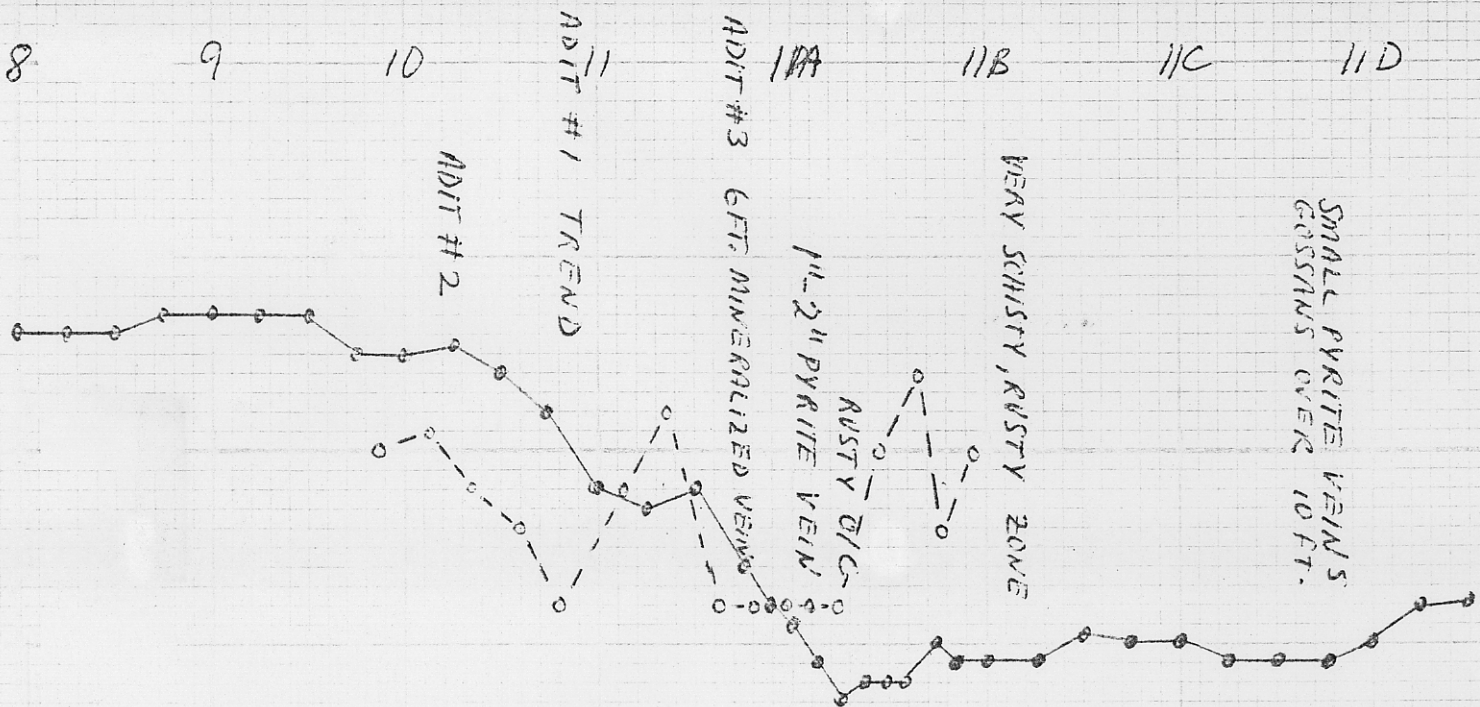 8 9 10 11 11A 11B 11C 11D
ADIT #2
ADIT #1 TREND
ADIT #3 6FT. MINERALIZED VEIN
1"-2" PYRITE VEIN
RUSTY O/C
VERY SCHISTY, RUSTY ZONE
SMALL PYRITE VEINS
GOSSANS OVER 10 FT.